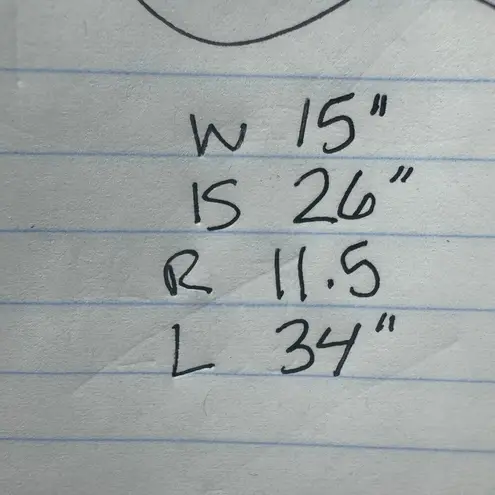 W 15"
IS 26"
R 11.5
L 34"